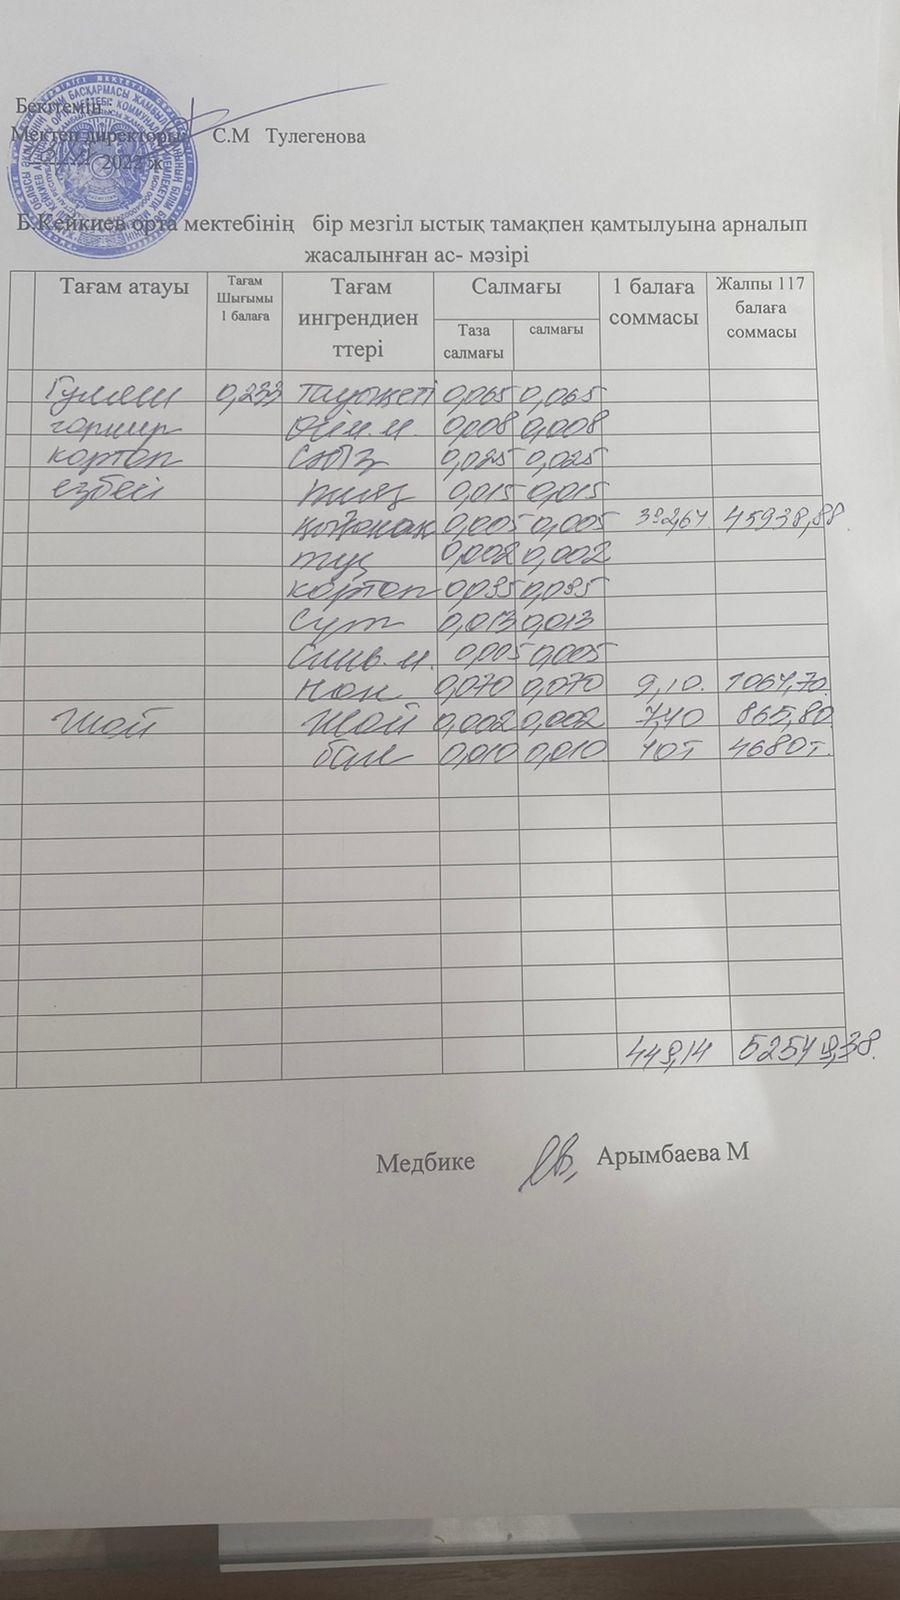 Бекітемін:
Мектеп директоры С.М Тулегенова
2022 ж
Б.Кейкиев орта мектебінің бір мезгіл ыстық тамақпен қамтылуына арналып
жасалынған ас- мәзірі
Тағам атауы Тағам Шығымы 1 балаға Тағам ингрендиен ттері Салмағы 1 балаға соммасы Жалпы 117 балаға соммасы
Таза салмағы салмағы
Гуляш 0,233 0,065 0,065
гарнир 0,008 0,008
картоп Сәбіз 0,025 0,025
езбесі пияз 0,015 0,015
қызанақ 0,005 0,005 45938,88
тұз 0,002 0,002
картоп 0,035 0,035
Сүт 0,013 0,013
Слив.м. 0,005 0,005
Нан 0,070 0,070 9,10. 1064,70.
Шай Шай 0,002 0,002 7,40 865,80
бал 0,010 0,010 40т 4680т.
449,14 52549,38.
Медбике Арымбаева М